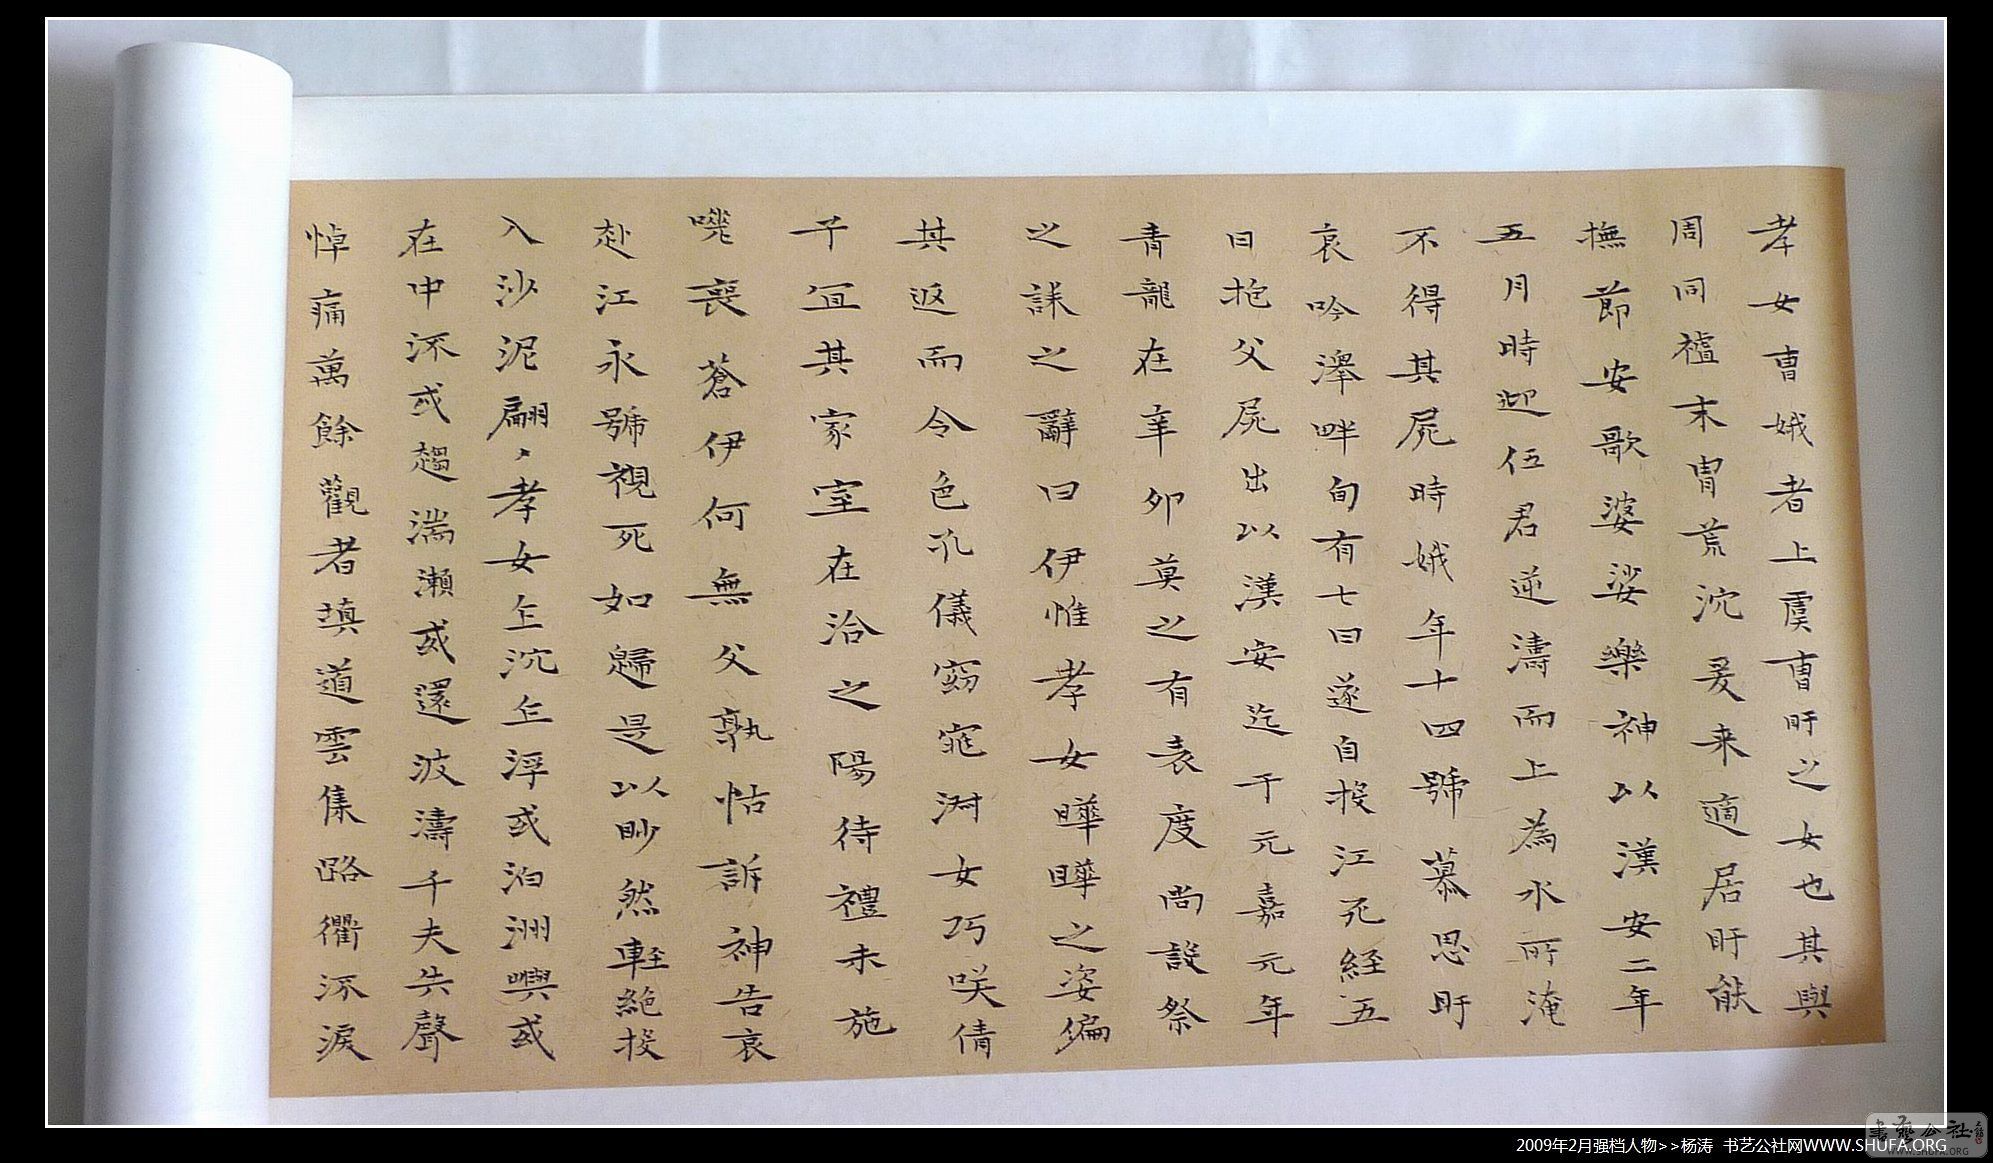 孝女曹娥者上虞曹盱之女也其與
周同禮末胄荒沉爰来適居盱能
撫節安歌婆娑樂神以漢安二年
五月時迎伍君逆濤而上為水所淹
不得其屍時娥年十四號慕思盱
哀吟澤畔旬有七日遂自投江死経五
日抱父屍出以漢安迄于元嘉元年
青龍在辛卯莫之有表度尚設祭
之誄之辭曰伊惟孝女曄曄之姿偏
其返而令色孔儀窈窕淑女巧咲倩
子宜其家室在洽之陽待禮未施
嗟喪蒼伊何無父孰怙訴神告哀
赴江永號視死如歸是以眇然輕絶投
入沙泥翩〻孝女乍沉乍浮或泊洲嶼或
在中流或趨湍瀬或還波濤千夫失聲
悼痛萬餘觀者填道雲集路衢流淚
2009年2月强档人物>>杨涛 书艺公社网WWW.SHUFA.ORG
書藝公社
WWW.SHUFA.ORG